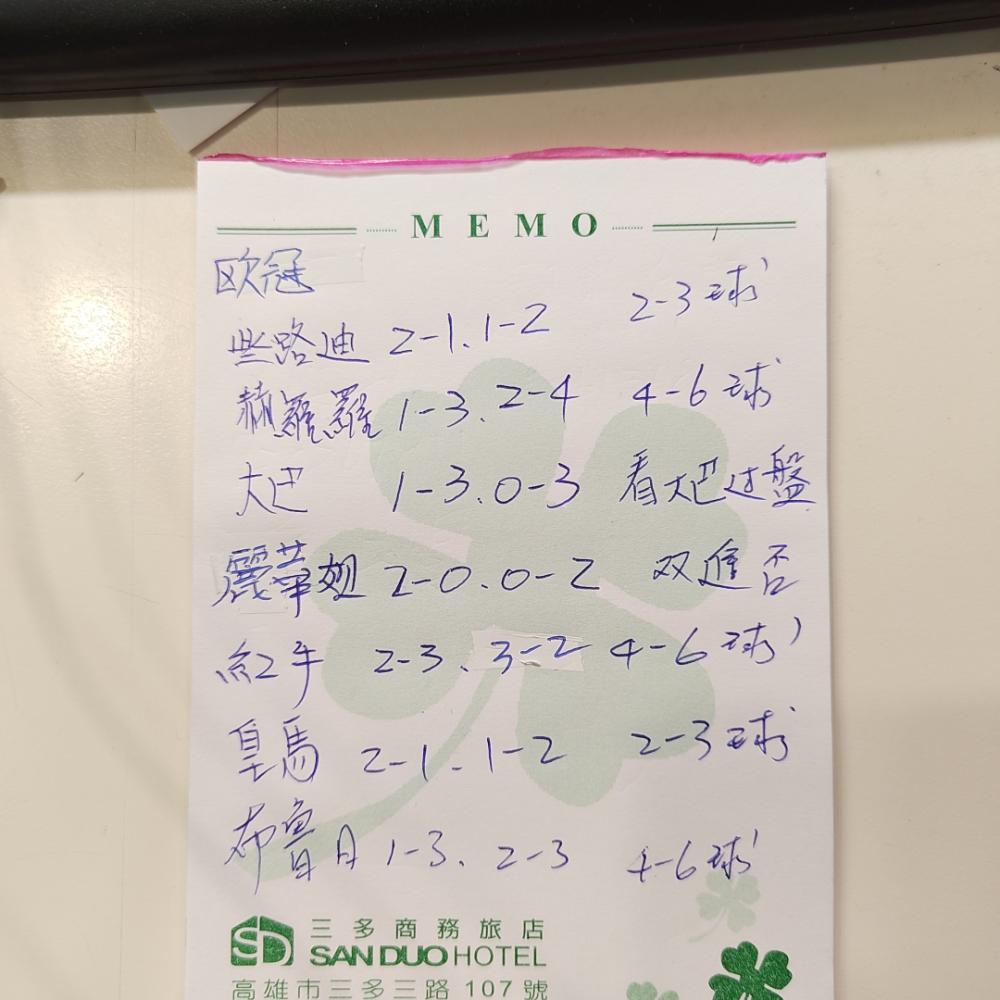 MEMO
欧冠
些路迪 2-1.1-2 2-3球
赫羅羅 1-3.2-4 4-6球
大巴 1-3.0-3 看大巴过盤
麗華姐 2-0.0-2 双進否
紅牛 2-3.3-2 4-6球
皇馬 2-1.1-2 2-3球
布魯日 1-3.2-3 4-6球
SD 三多商務旅店
SAN DUO HOTEL
高雄市三多三路107號